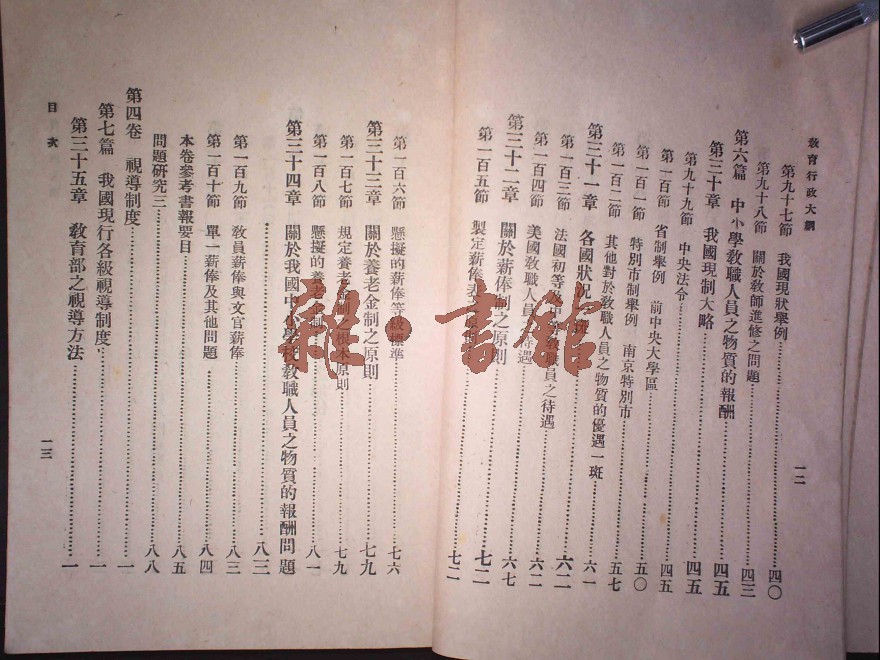 教育行政大綱
第九十七節　我國現狀舉例……四〇
第九十八節　關於教師進修之問題……四三
第六篇　中小學教職人員之物質的報酬……四五
第三十章　我國現制大略……四五
第九十九節　中央法令……四五
第一百節　省制舉例　前中央大學區……五〇
第一百一節　特別市制舉例　南京特別市……五七
第一百二節　其他對於教職人員之物質的優遇一斑……六一
第三十一章　各國狀況一斑……六二
第一百三節　法國初等及中等教職員之待遇……六二
第一百四節　美國教職人員之待遇……六七
第三十二章　關於薪俸制之原則……七二
第一百五節　製定薪俸表之原則……七二
一二
第一百六節　懸擬的薪俸等級標準……七六
第三十三章　關於養老金制之原則……七九
第一百七節　規定養老金制之根本原則……七九
第一百八節　懸擬的養老金制……八一
第三十四章　關於我國中小學校教職人員之物質的報酬問題
……八三
第一百九節　教員薪俸與文官薪俸……八三
第一百十節　單一薪俸及其他問題……八四
本卷參考書報要目……八五
問題研究三……八八
第四卷　視導制度……一
第七篇　我國現行各級視導制度……一
第三十五章　教育部之視導方法……一
目次
一三
雜·書館